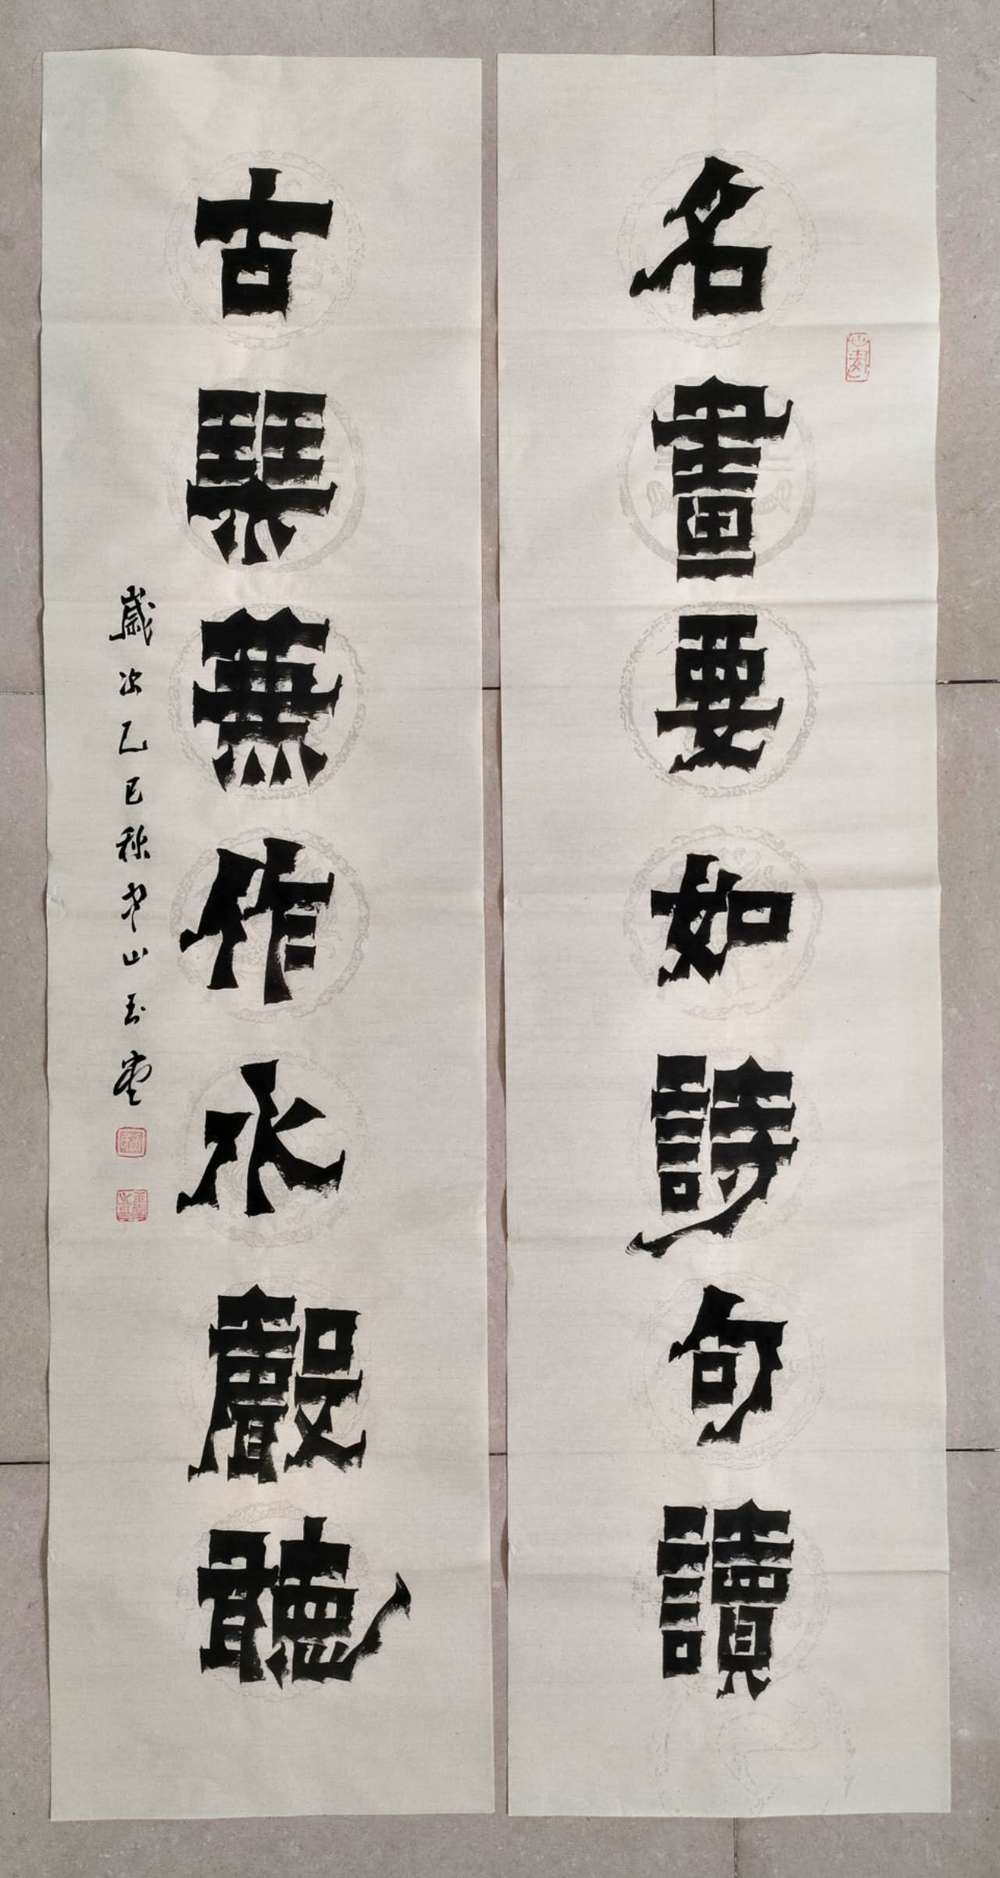 名畫要如詩句讀
古琴兼作水聲聽
歲次乙巳秋中山玉堂